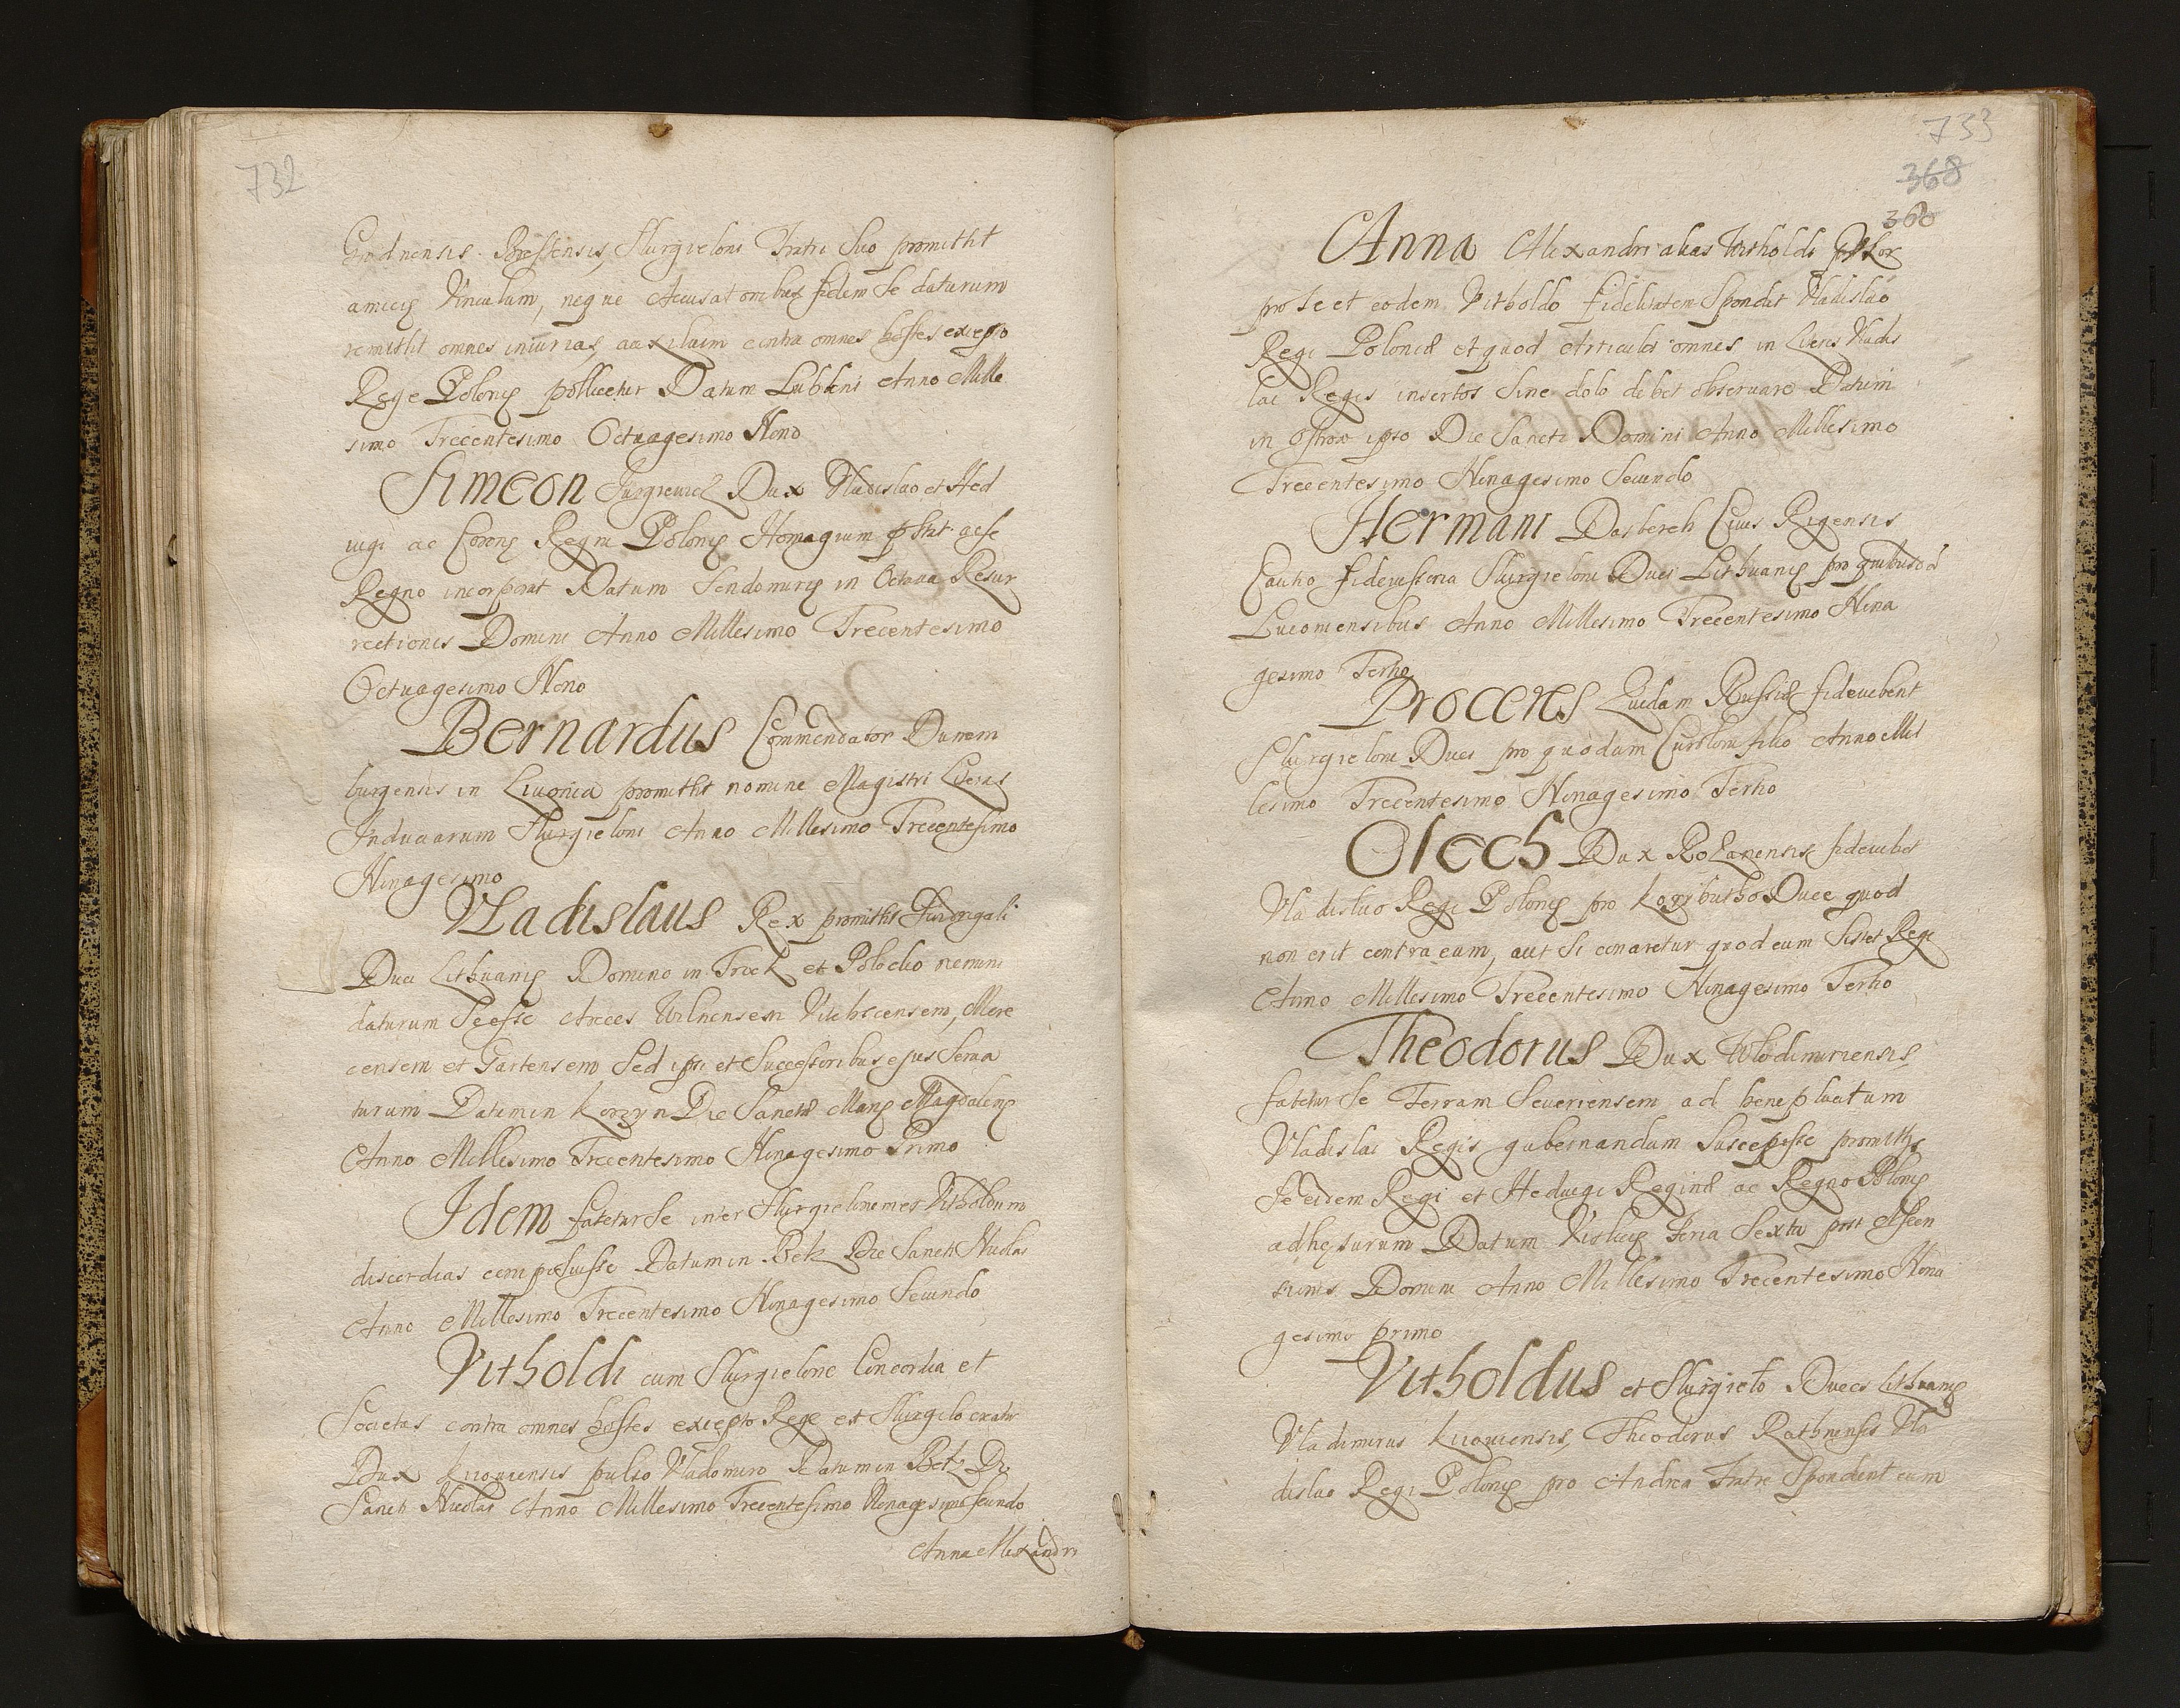 732
Grodnensis Brestensis, Skurgieloni Fratri Suo promittit
amicię Vinculum, neque Accusatoribus fidem Se daturum
remittit omnes iniurias, auxilium contra omnes hostes excepto
Rege Polonię pollicetur Datum Lublini Anno Mille
simo Trecentesimo Octuagesimo Nono
Simeon Jurgiewicz Dux Vladislao et Hed
uigi ac Coronę Regni Polonię Homagium pstat acse
Regno incorporat Datum Sendomirię in Octava Resur
rectionis Domini Anno Millesimo Trecentesimo
Octuagesimo Nono
Bernardus Commendator Dunem
burgensis in Livonia promittit nomine Magistri Literas
Induciarum Skurgieloni Anno Millesimo Trecentesimo
Nonagesimo
Vladislaus Rex promittit
Duci Lithuanię Domino in Trock et Polocko nemini
daturum Seesse Arces Wilnensem Vitebscensem, Mere
censem et Gartensem Sed ipsi et Successoribus ejus Serva
turum Datum in Korczyn Die Sanctæ Marię Magdalenę
Anno Millesimo Trecentesimo Nonagesimo Primo
Idem fatetur Se inter Skurgielonem et Vitholdum
discordias composuisse Datum in Belz Die Sancti Nicolai
Anno Millesimo Trecentesimo Nonagesimo Secundo
Vitholdi cum Skurgielone Concordia et
Societas contra omnes hostes excepto Rege et Skirgelo creatur
Dux Kiioviensis pulso Vladomiro Datum in Belz Die
Sancti Nicolai Anno Millesimo Trecentesimo Nonagesimo secundo
Anna Alexandri
733
368
360
Anna Alexandri alias Witholdi Vxor
pro Se et eodem Vitholdo fidelitatem Spondet Vladislao
Regi Poloniæ et quod Articulos omnes in Literis Vladis
lai Regis insertos Sine dolo debet observare Datum
in Ostrow ipso Die Sancti Domini Anno Millesimo
Trecentesimo Nonagesimo Secundo
Hermani Dasberch Civis Rigensis
Cautio fideiussoria Skirgieloni Duci Lithuanię pro quibusd
Lucomensibus Anno Millesimo Trecentesimo Nona
gesimo Tertio
Proceres Quidam Russiæ fideiubent
Skirgieloni Duci pro quodam filio Anno Mil
lesimo Trecentesimo Nonagesimo Tertio
Olech Dux Rozanensis fideiubet
Vladislao Regi Polonię pro Korybutho Duce quod
non erit contra eum, aut Si conaretur quod eum Sistet Regi
Anno Millesimo Trecentesimo Nonagesimo Tertio
Theodorus Dux Wlodimiriensis,
fatetur Se Terram Severiensem ad beneplacitum
Vladislai Regis gubernandam Suscepisse promittit
Se eidem Regi et Hedvigi Reginæ ac Regno Polonię
adhęsurum Datum Vislicię Feria Sexta post Ascen
sionis Domini Anno Millesimo Trecentesimo Nona
gesimo primo
Vitholdus et Skirgielo Duces Lithuanię
Vladimirus Kiioviensis, Theodorus Rathnensis Vla
dislao Regi Polonię pro Andrea Fratre Spondent eum